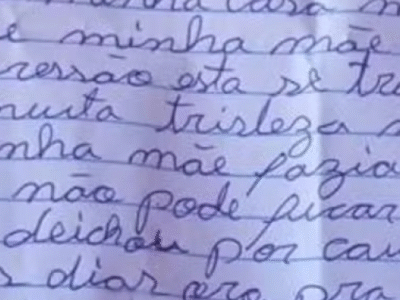 minha casa m
e minha mãe
ressão esta se tra
muita trisleza
nha mãe fazia
não pode ficar
deichou por cau
s diar era pra